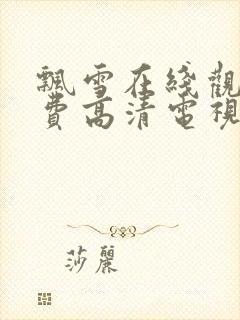 飄雪在綫觀
費高清電視
莎麗